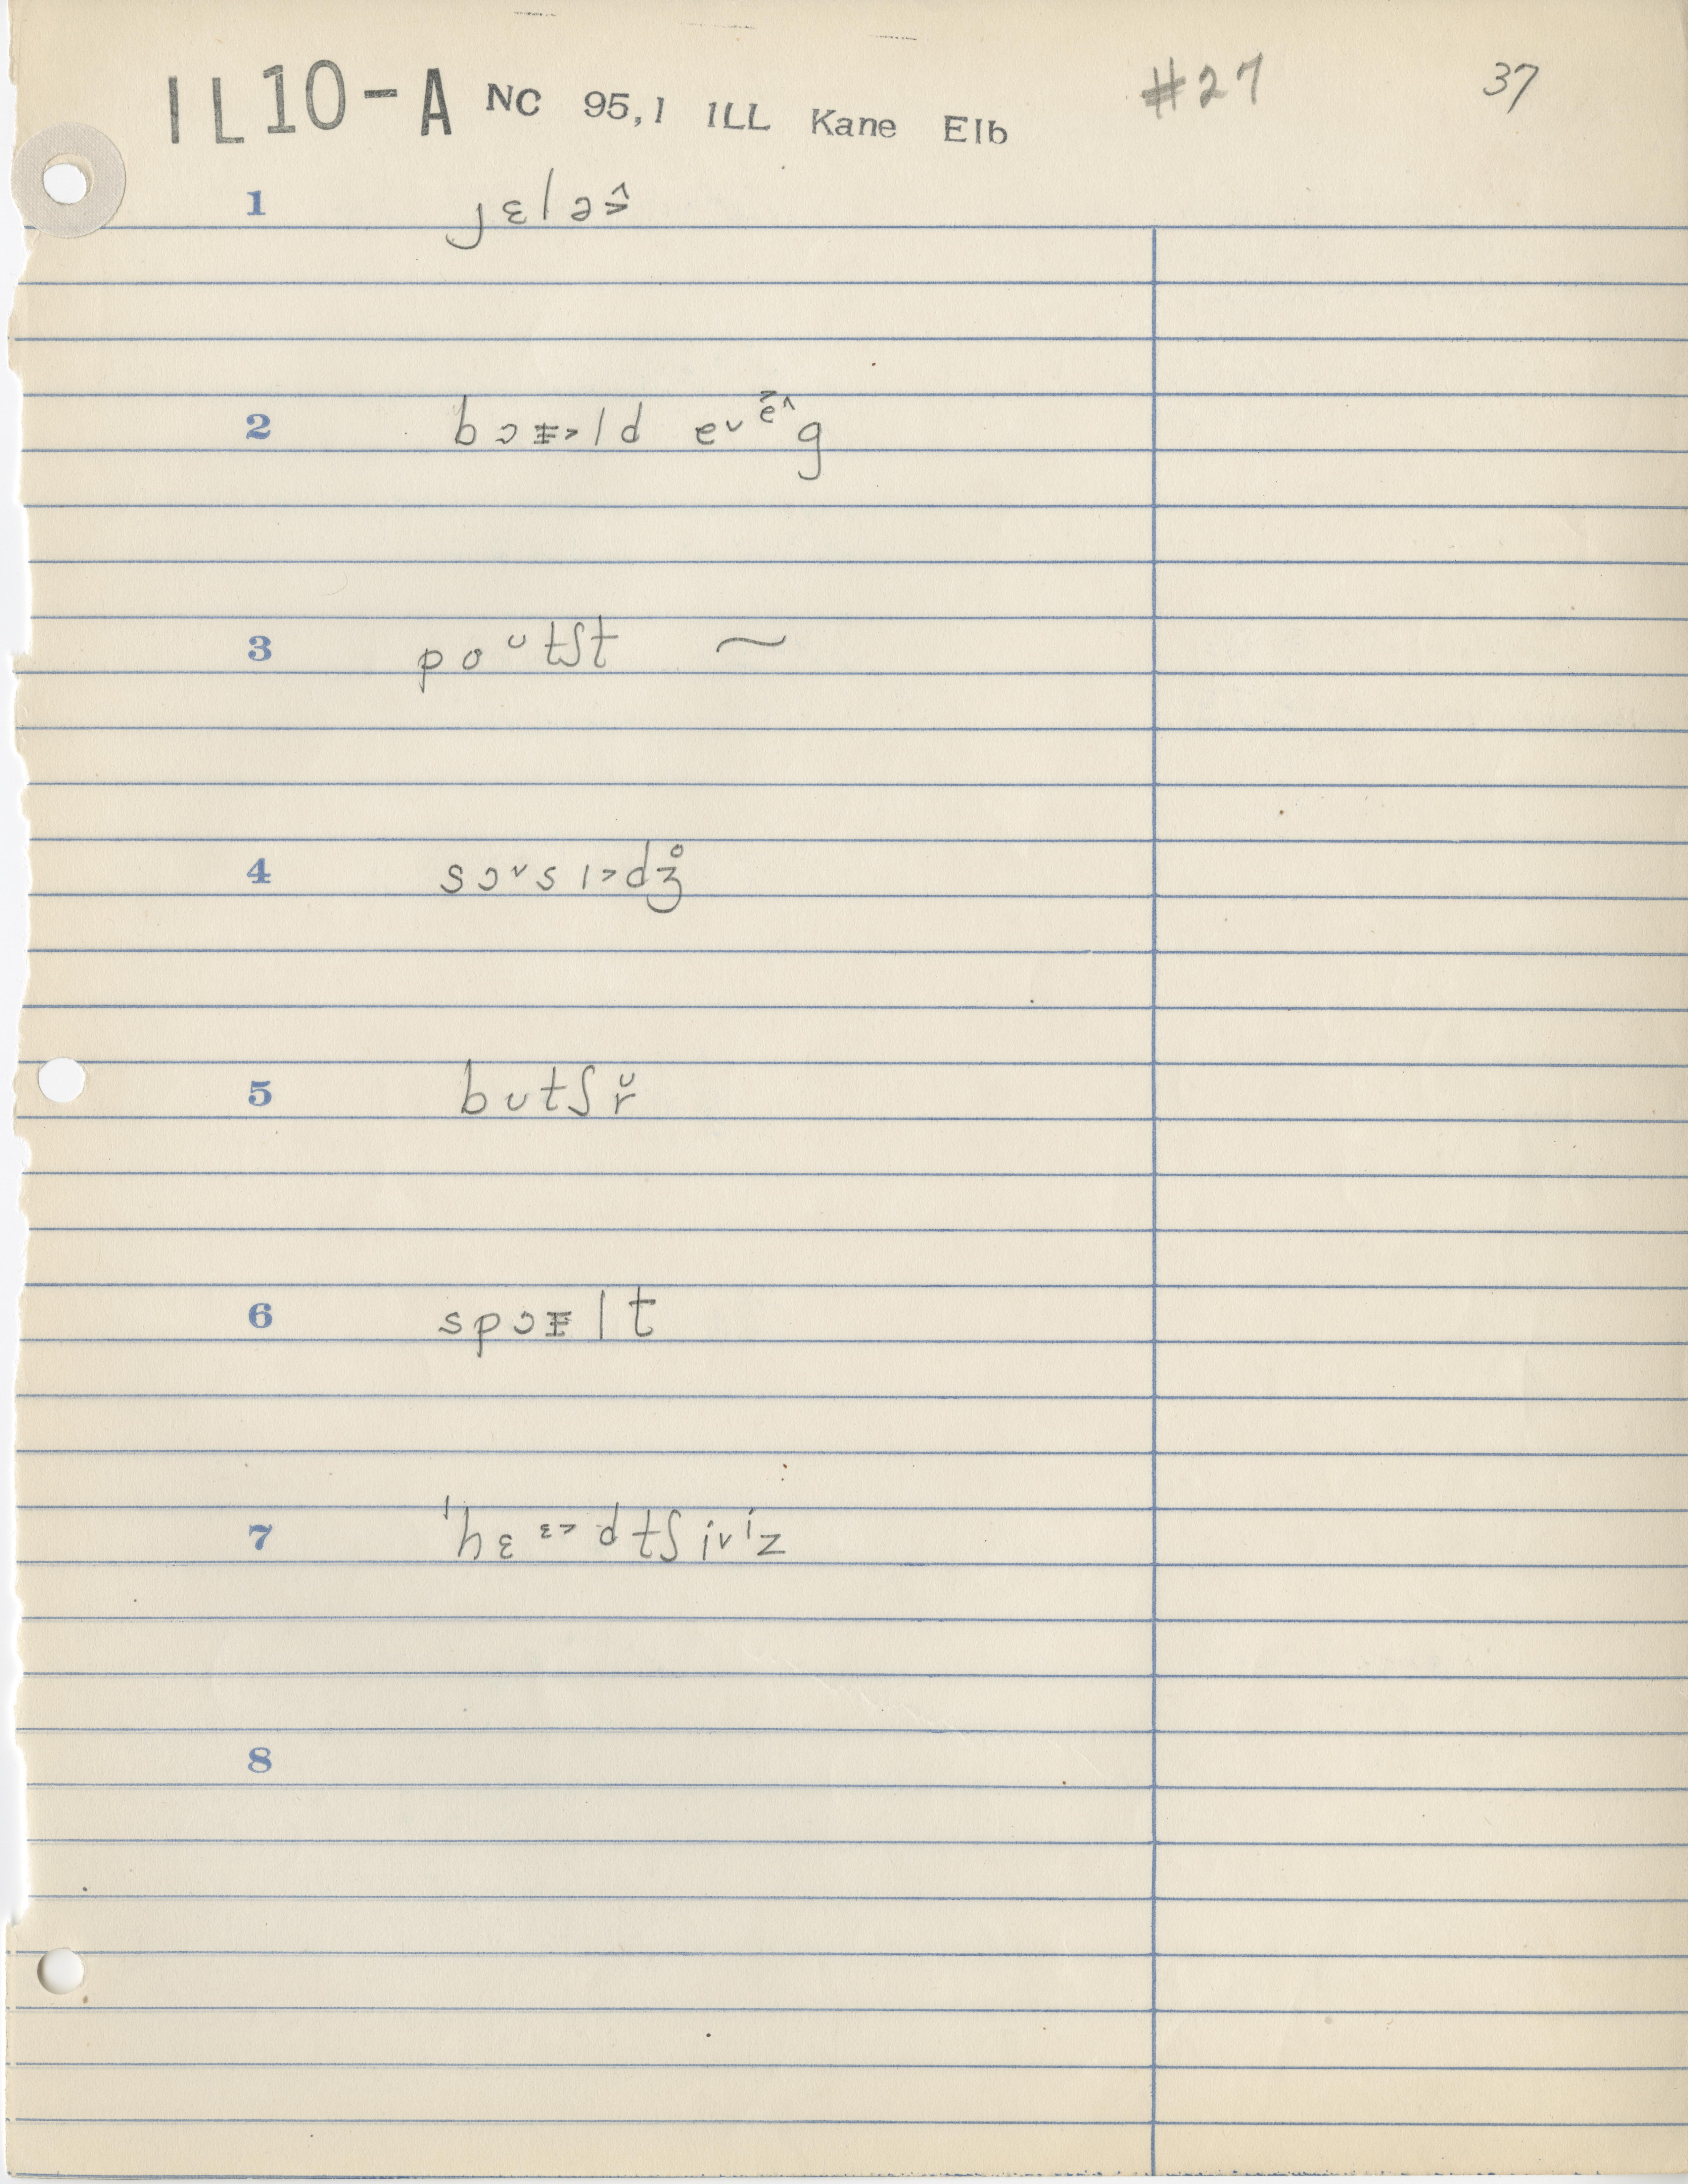 IL10-A NC 95,1 ILL Kane Elb #27 37
1 jɛlə˃̂
2 bɔɪ˃ld eᵛe̝ˆg
3 poᶷtʃt ~
4 sɔᵛsɪ˃dʒ̊
5 bʊtʃr̆
6 spɔɪlt
7 ˈhɛᵋ˃dtʃiᵛⁱz
8